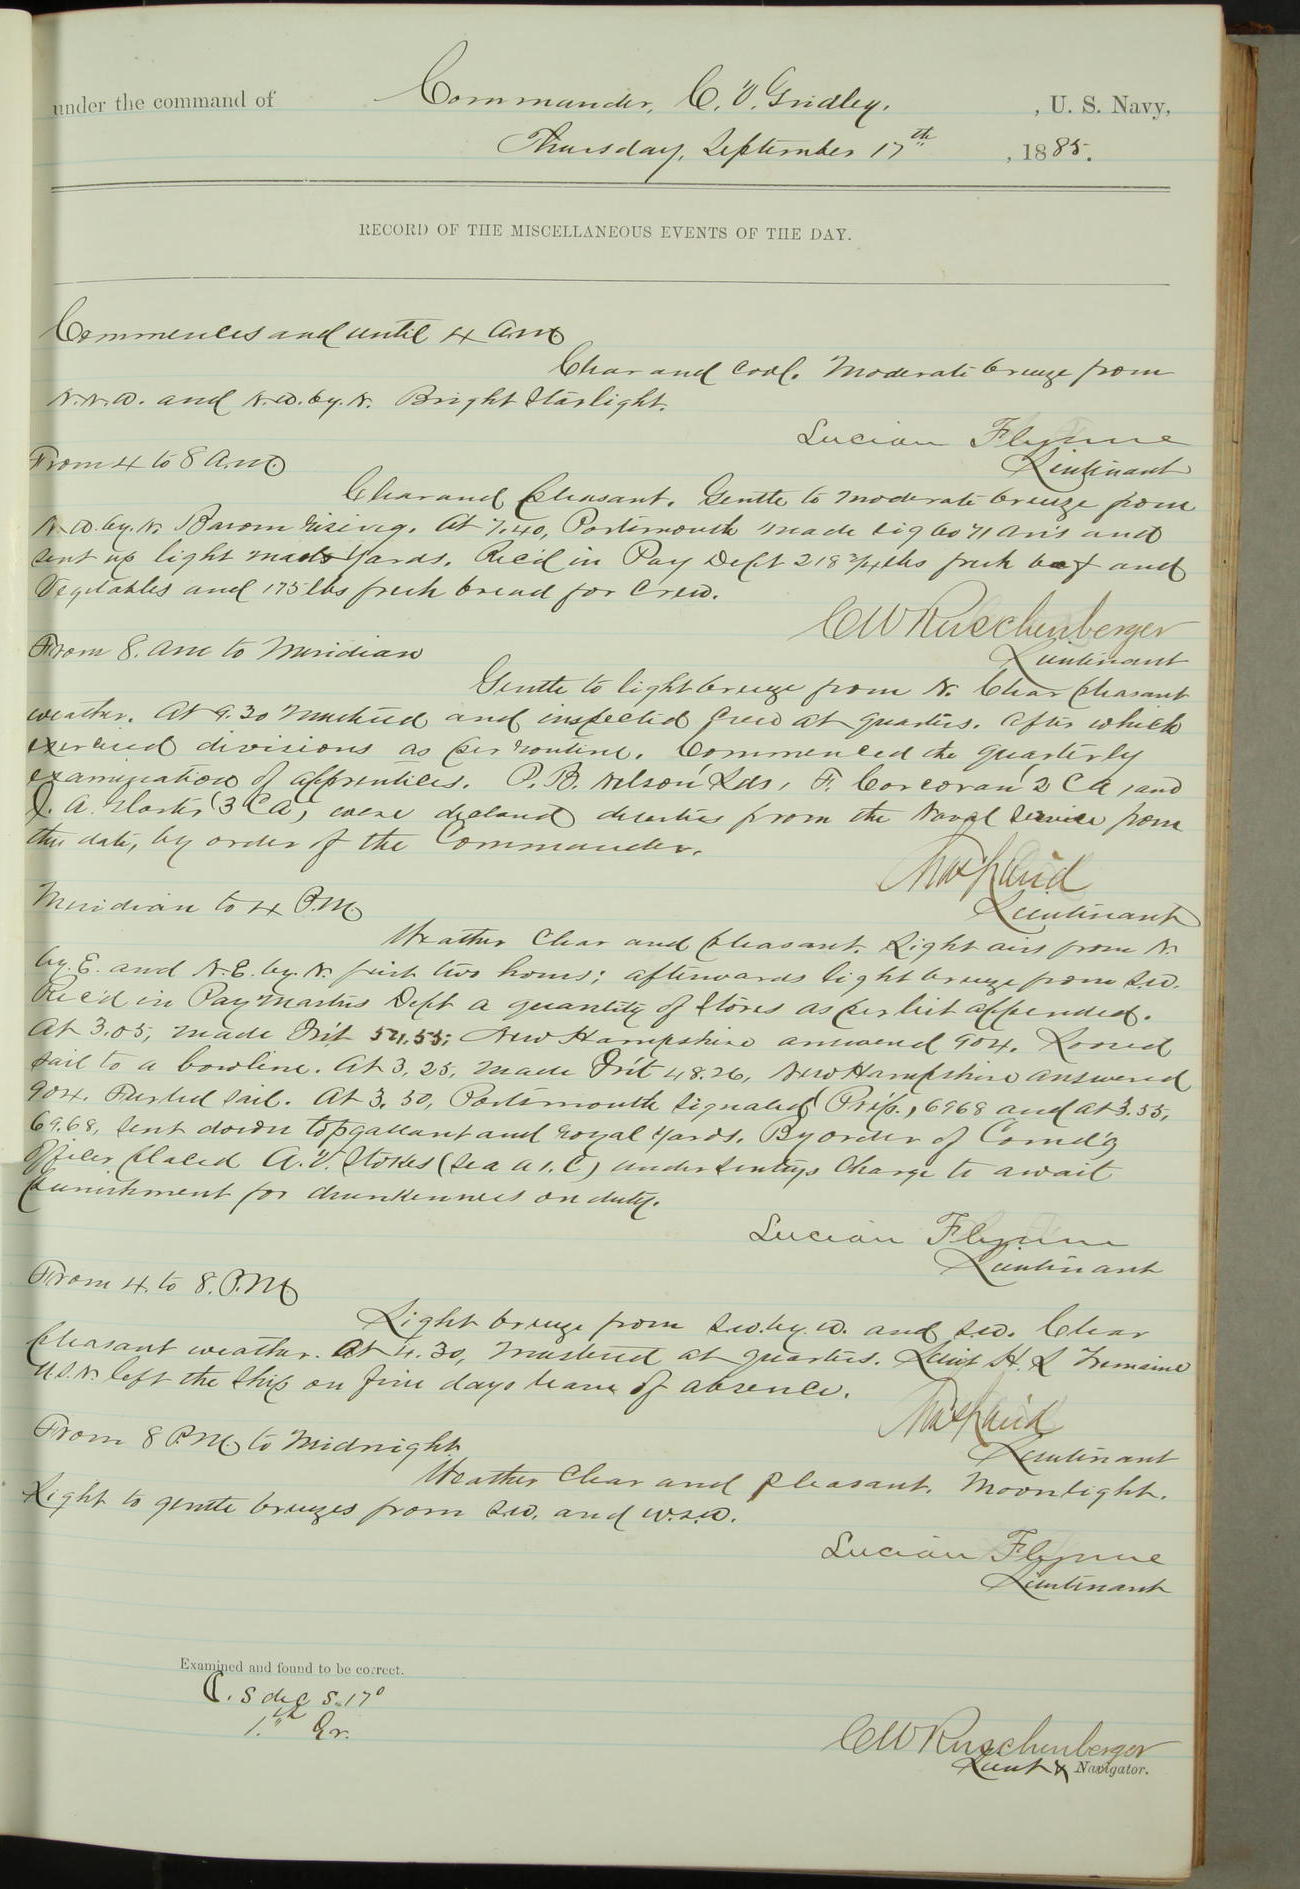 under the command of Commander, C. V. Gridley. , U. S. Navy,
Thursday, September 17th , 1885.
RECORD OF THE MISCELLANEOUS EVENTS OF THE DAY.
Commences and until 4 a.m
Clear and cool. Moderate breeze from
N.N.W. and N.W. by. N. Bright Starlight.
Lucian Flynne
Lieutenant
From 4 to 8 a.m.
Clear and pleasant. Gentle to moderate breeze from
N.W. by. N. Barom rising. At 7.40, Portsmouth made sig and
sent up light yards. Rec'd in Pay Dept 218 3/4 lbs fresh beef and
Vegetables and 175 lbs fresh bread for Crew.
CW Ruschenberger
Lieutenant
From 8. am to Meridian
Gentle to light breeze from N. Clear pleasant
weather. At 9.30 mustered and inspected crew at quarters. After which
exercised divisions as per routine. Commenced the quarterly
examination of apprentices. P. B. Nelson Lds, F. Corcoran 2 C a, and
A. (3 C a), were declared deserters from the Naval Service from
this date, by order of the Commander.
Chas Laird
Lieutenant
Meridian to 4 P.M.
Weather Clear and pleasant. Light airs from N.
by. E. and N.E. by. N. first two hours; afterwards light breeze from S.W.
Rec'd in Paymasters Dept a quantity of Stores as per list appended.
At 3.05, made Int 54.55; New Hampshire answered 904. Loosed
sail to a bowline. At 3.25, made Int 48.26, New Hampshire answered
904. Furled sail. At 3.30, Portsmouth signaled Prep., 6968 and at 3.55,
69.68, sent down topgallant and royal yards. By order of Comd'g
Officer placed A. V. Stokes (Sea a 1. C) under sentrys charge to await
punishment for drunkenness on duty.
Lucian Flynne
Lieutenant
From 4. to 8. P.M
Light breeze from S.W. by. W. and S.W. Clear
pleasant weather. At 4.30, mustered at quarters. Lieut H. L Tremaine
U.S.N. left the Ship on five days leave of absence.
Chas Laird
Lieutenant
From 8 P.M. to Midnight
Weather Clear and pleasant. Moonlight.
Light to gentle breezes from S.W. and W.S.W.
Lucian Flynne
Lieutenant
Examined and found to be correct.
CW Ruschenberger
Lieut & Navigator.